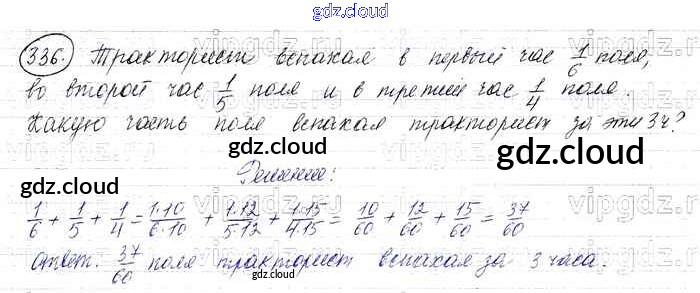 gdz.cloud
336. Тракторист вспахал в первый час 1/6 поля,
во второй час 1/5 поля и в третий час 1/4 поля.
Какую часть поля вспахал тракторист за эти 3ч?
gdz.cloud gdz.cloud
Решение:
gdz.cloud
1/6 + 1/5 + 1/4 = 1·10/6·10 + 1·12/5·12 + 1·15/4·15 = 10/60 + 12/60 + 15/60 = 37/60
Ответ: 37/60 поля тракторист вспахал за 3 часа.
gdz.cloud gdz.cloud
gdz.cloud